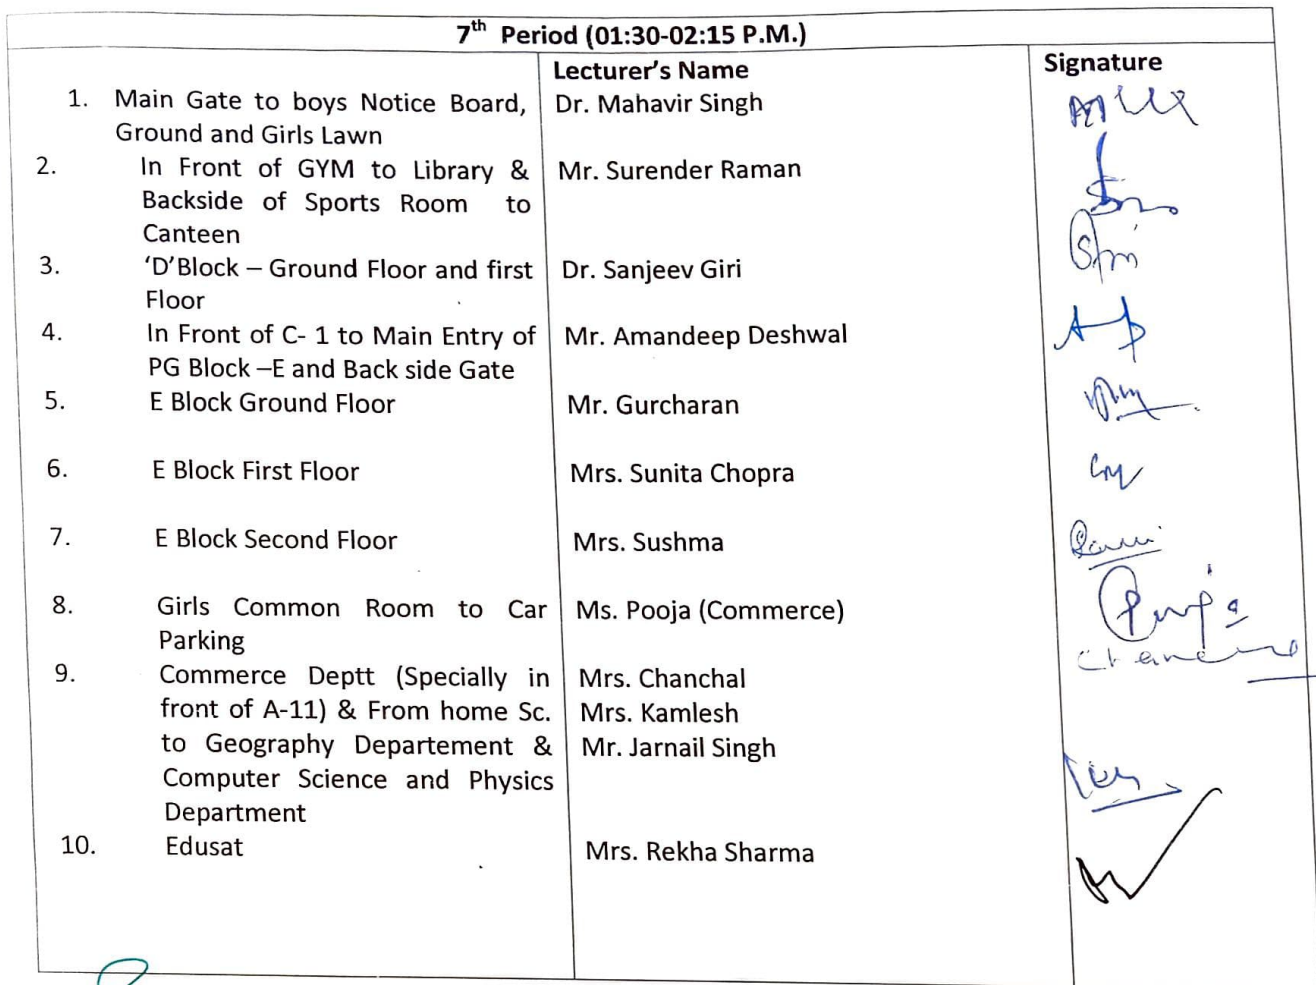 7th Period (01:30-02:15 P.M.)
Lecturer's Name
Signature
1. Main Gate to boys Notice Board,
Ground and Girls Lawn
Dr. Mahavir Singh
2. In Front of GYM to Library &
Backside of Sports Room to
Canteen
Mr. Surender Raman
3. 'D'Block – Ground Floor and first
Floor
Dr. Sanjeev Giri
4. In Front of C- 1 to Main Entry of
PG Block –E and Back side Gate
Mr. Amandeep Deshwal
5. E Block Ground Floor
Mr. Gurcharan
6. E Block First Floor
Mrs. Sunita Chopra
7. E Block Second Floor
Mrs. Sushma
8. Girls Common Room to Car
Parking
Ms. Pooja (Commerce)
9. Commerce Deptt (Specially in
front of A-11) & From home Sc.
to Geography Departement &
Computer Science and Physics
Department
Mrs. Chanchal
Mrs. Kamlesh
Mr. Jarnail Singh
10. Edusat
Mrs. Rekha Sharma